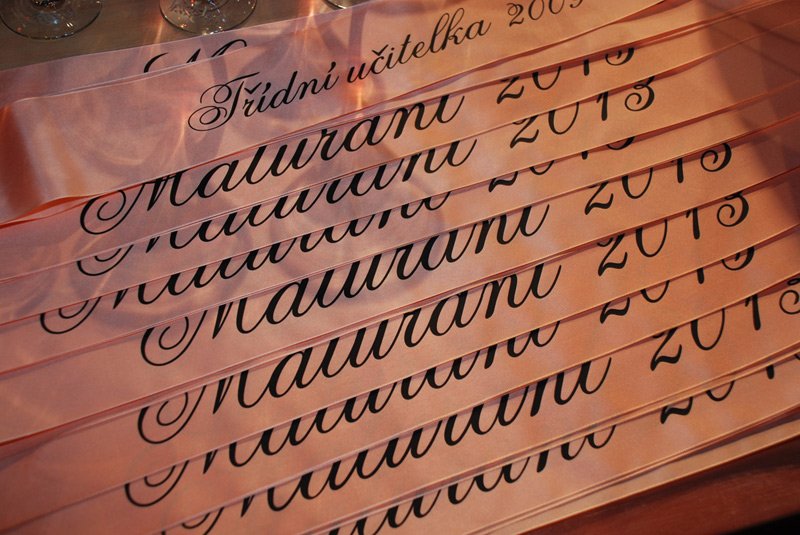 Třídní učitelka 2009
Maturant 2013
Maturant 2013
Maturant 2013
Maturant 2013
Maturant 2013
Maturant 2013
Maturant 2013
Maturant 2013